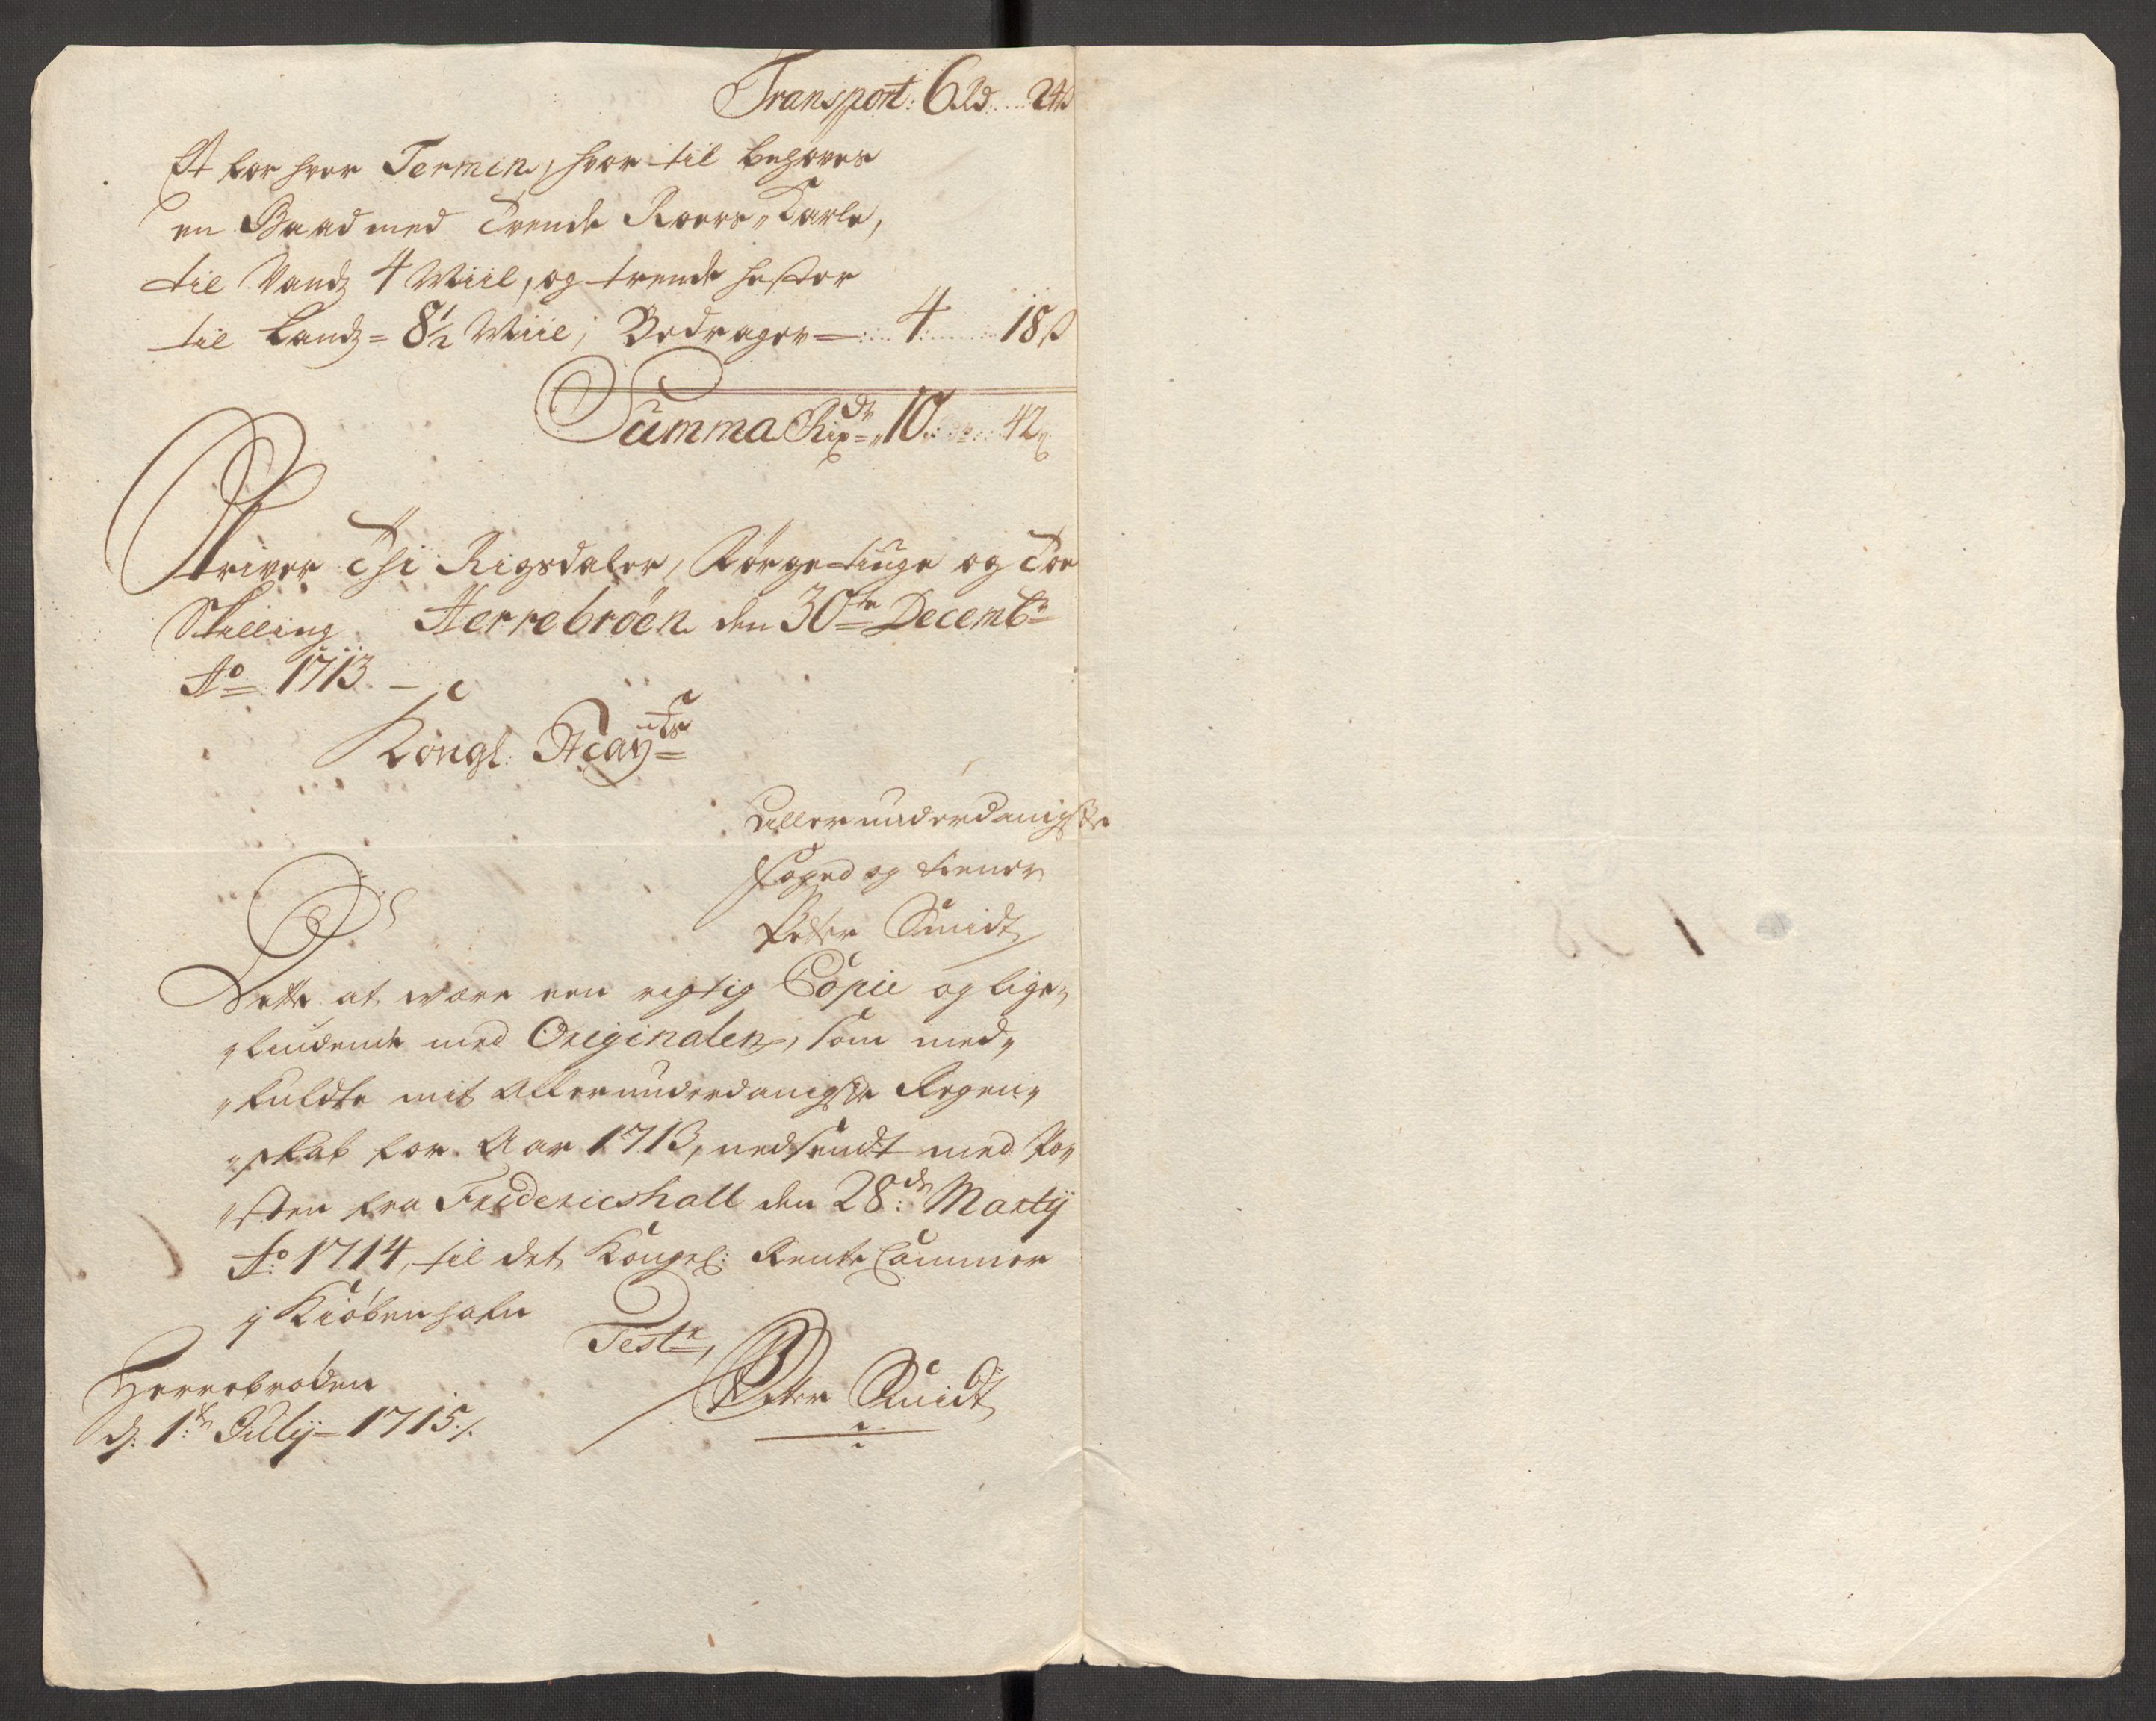 Transport: 6 Rd .... 24 ß
Et for hver Termin, hvor til behøves
en Baad med Tvende Roers Karle,
til Vandz 4 Miil, og trende hester
til Landz = 8½ Miil, Bedrager — : ... 4 ........ 18 ß
Summa Rixdr = 10 : .... 42 ß
Skriver Thi Rigsdaler, Førgetiuge og Toe
Skilling. Herrebrøen den 30te Decembr
Ao 1713. —
Kongl: Mayts
Allerunderdanigste
Foged og tiener
Peter Smidt
Dette at være een rigtig Copie og lige„
„lindende med Originalen, som med„
„fuldte mit Allerunderdanigste Regen„
„skab for Aar 1713, nedsendt med Po„
„sten fra Fridericshall den 28de Martij
Ao 1714, til det Kongel: Rente Cammer
i Kiøbenhafn
Teste,
Herrebroden
d: 1te July = 1715 /.
Peter Smidt